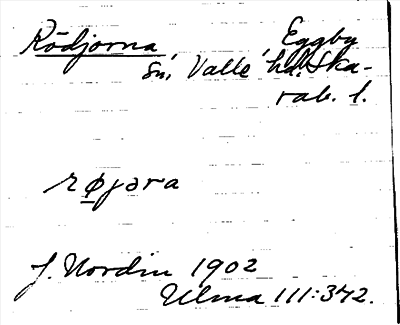 Rödjorna Eggby
sn, Valle hd. Ska-
rab. l.
røjəra
J. Nordin 1902
Ulma 111:372.